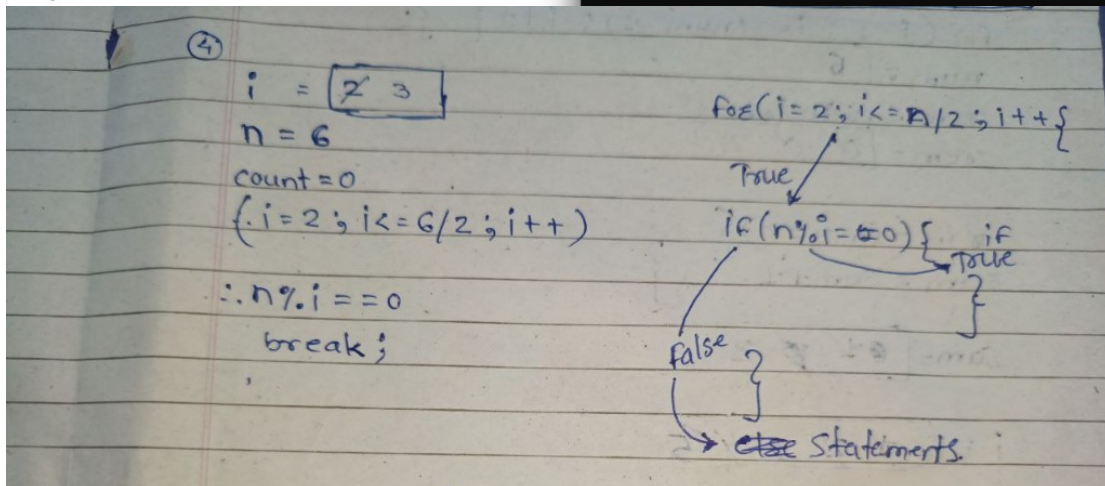 4
i = 2 3
n = 6
count = 0
(.i = 2 ; i <= 6/2 ; i++)
∴ n % i == 0
break ;
for(i = 2 ; i <= n/2 ; i++{
True
if (n % i == 0) { if
True
}
false
}
else Statements.